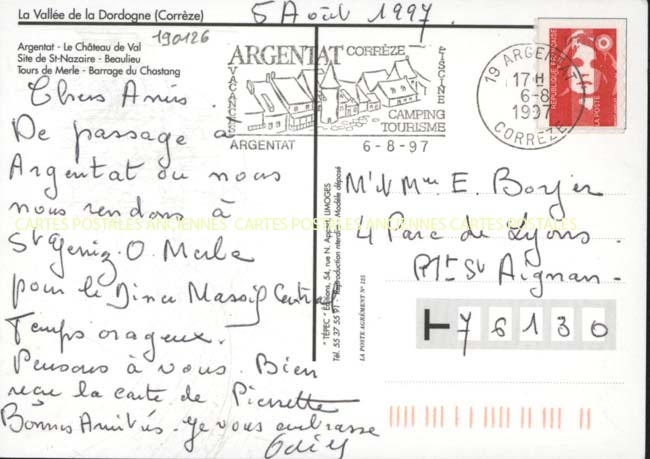 La Vallée de la Dordogne (Corrèze)
5 Août 1997.
190126
Argentat - Le Château de Val
Site de St-Nazaire - Beaulieu
Tours de Merle - Barrage du Chastang
ARGENTAT CORRÈZE
VACANCES
PISCINE
CAMPING
TOURISME
ARGENTAT 6-8-97
19 ARGENTAT
17H
6-8
1997
CORREZE
REPUBLIQUE FRANÇAISE
LA POSTE
Chers Amis.
De passage à
Argentat ou nous
nous rendons à
St Geniez. O. Merle
pour le Diner Massif Central
Temps orageux.
Pensons à vous. Bien
reçu la carte de Pierrette
Bonnes Amitiés - Je vous embrasse
CARTES POSTALES ANCIENNES CARTES POSTALES ANCIENNES CARTES POSTALES ANCIENNES
"TÉPEC" Éditions, 54, rue N. Appert LIMOGES
Tél. 55 37 55 91 - Reproduction interdite - Modèle déposé
LA POSTE AGRÉMENT N° 125
M. et Mme E.
4 Parc de Lyons.
Mt St Aignan -
76130